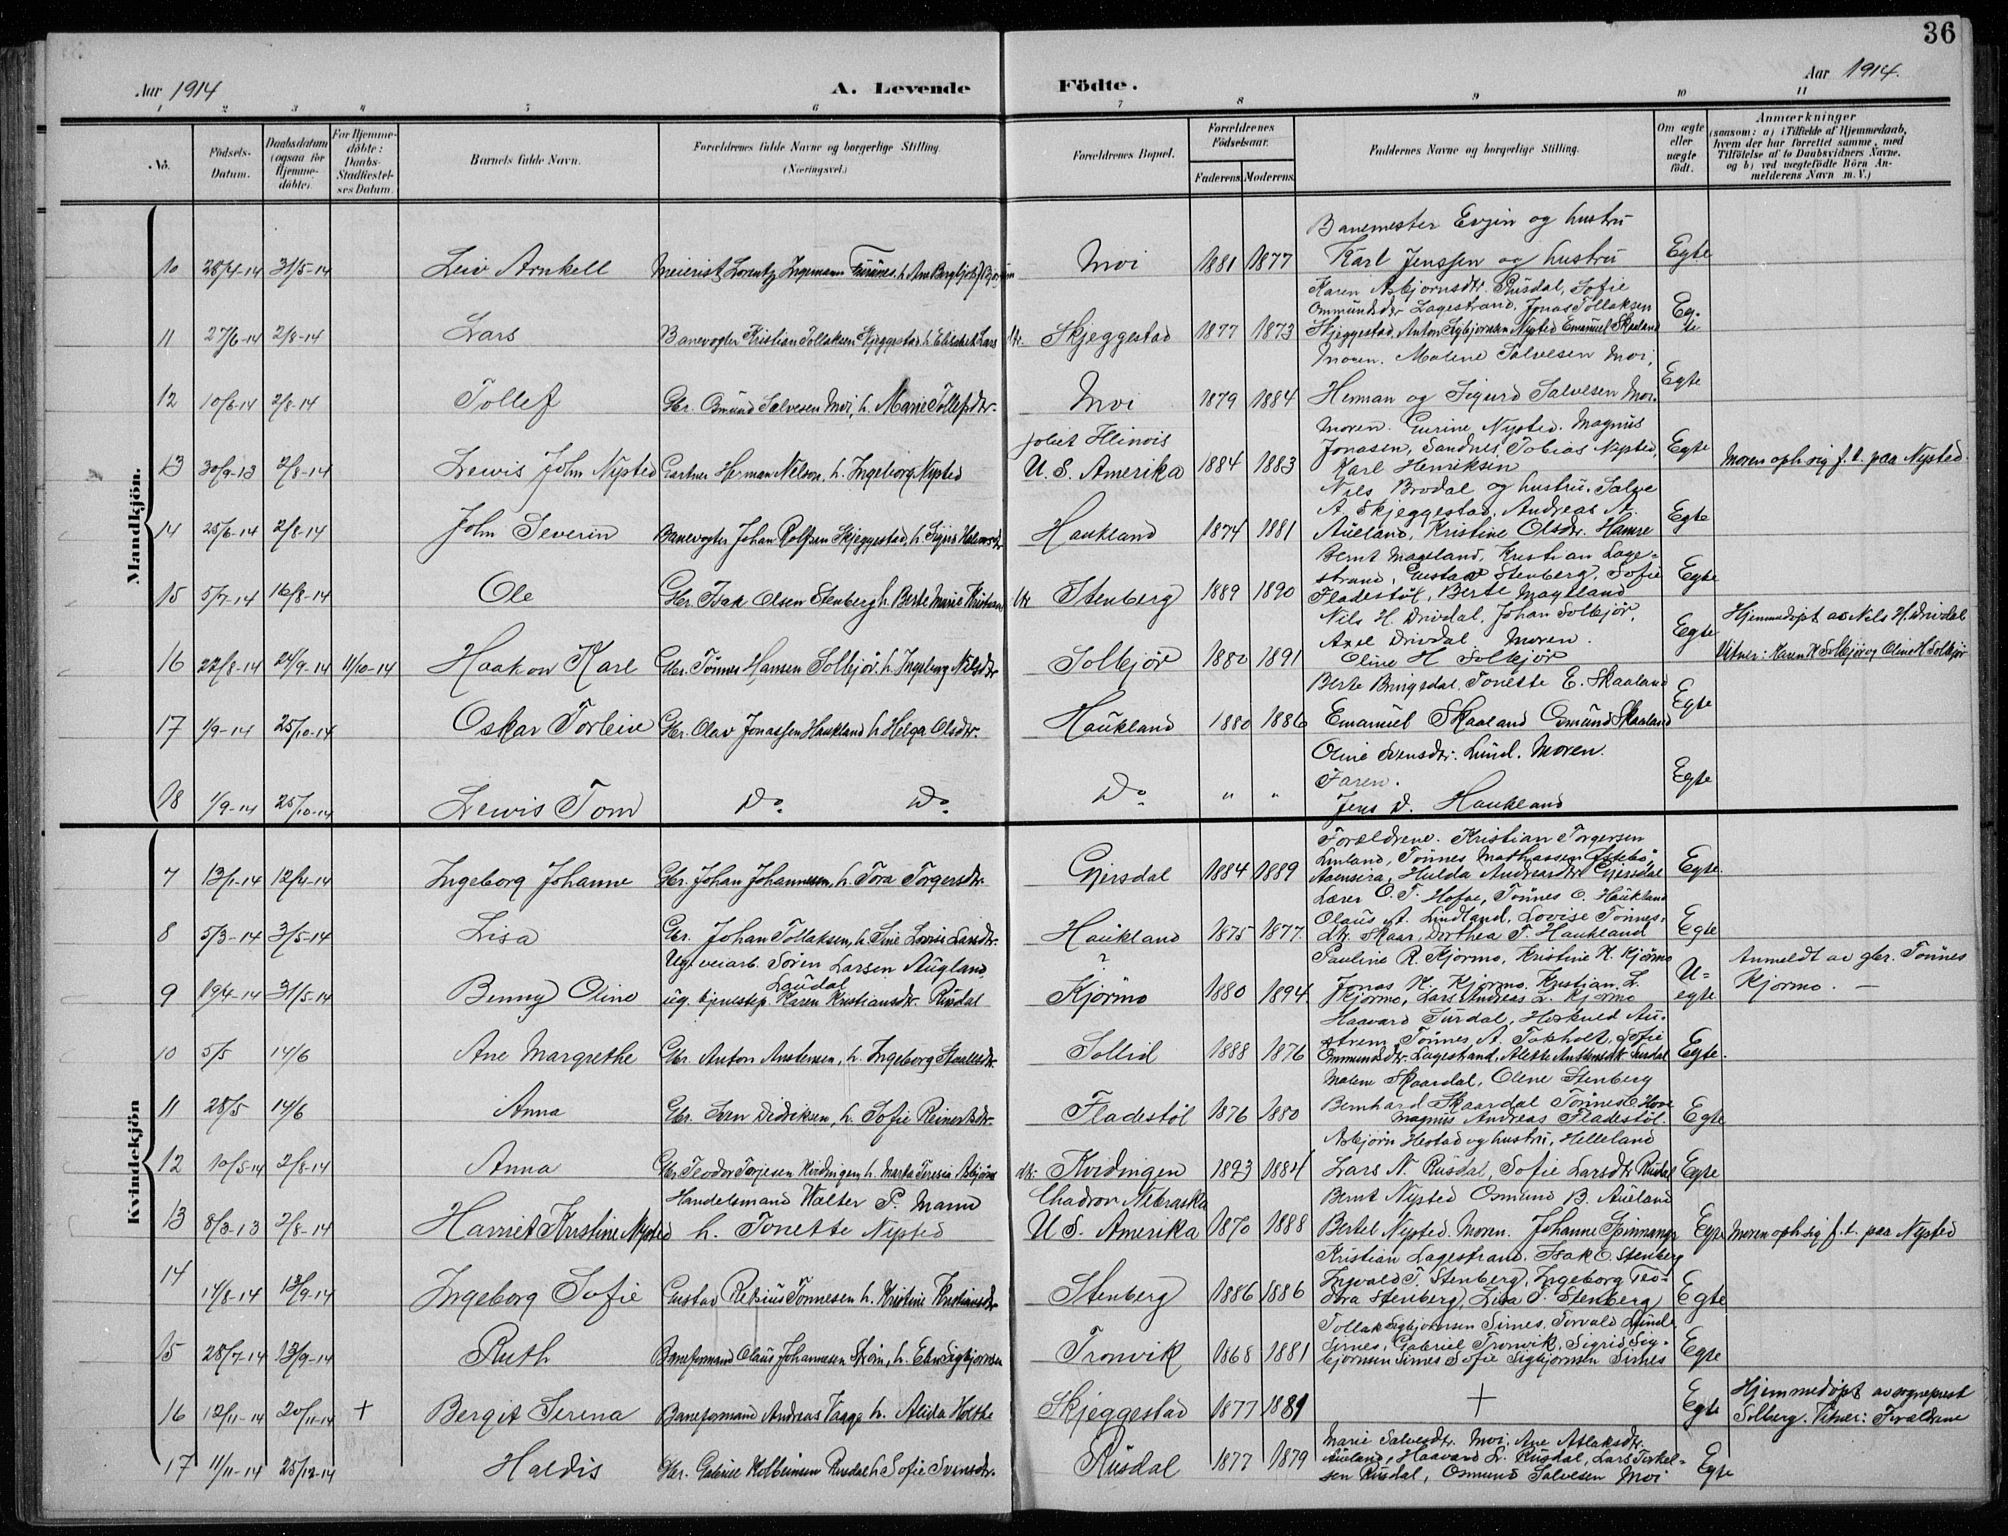 36
Aar 1914
A. Levende Födte.
Aar 1914.
1 2 3 4 5 6 7 8 9 10 11
No.
Födsels-Datum.
Daabsdatum (ogsaa for Hjemmedöbte).
For Hjemmedöbte: Daabs-Stadfæstelses Datum.
Barnets fulde Navn.
Forældrenes fulde Navne og borgerlige Stilling. (Næringsvei.)
Forældrenes Bopæl.
Forældrenes Födselsaar.
Faderens. Moderens.
Faddernes Navne og borgerlige Stilling.
Om ægte eller uægte födt.
Anmærkninger
(saasom: a) i Tilfælde af Hjemmedaab, hvem der har forrettet samme, med Tilföielse af to Daabsvidners Navne, og b) ved uægtefödte Börn Anmelderens Navn m. V.)
Mandkjön.
10 28/4-14 31/5-14 Leiv Arnkell Meierist Lorentz Ingemann Furünes, h. Moi 1881 1877 Banemester Evjen og hustru Karl Jenssen og hustru Egte
11 27/6-14 2/8-14 Lars Banevogter Kristian Tollaksen Skjeggestad h. Elisabet Lars dtr. Skjeggestad 1877 1873 Karen Asbjørnsdtr. Rusdal, Sofie Ommundsdtr Lagestrand, Jonas Tollaksen Skjeggestad, Anton Sigbjørnsen Nysted Emanuel Skaaland Egte
12 10/6-14 2/8-14 Tollef Gbr. Omund Salvesen Moi, h. Marie Tollefsdtr. Moi 1879 1884 Moren. Malene Salvesen Moi, Herman og Sigurd Salvesen Moi. Egte
13 30/9-13 2/8-14 Lewis John Nysted Gartner Herman Nelson, h. Ingeborg Nysted Joliet Illinois U. S. Amerika 1884 1883 Moren. Gurine Nysted. Magnus Jonasen, Sandnes, Tobias Nysted, Karl Henriksen Egte Moren oph. sig f. t. paa Nysted.
14 25/6-14 2/8-14 John Severin Banevogter Johan Rolfsen Skjeggestad, h. Sigrid Haakonsdtr Haukland 1874 1881 Nils Brodal og hustru. Salve A. Skjeggestad, Andreas A. Aueland, Kristine Olsdtr. Hamre Egte
15 5/7-14 16/8-14 Ole Gbr. Isak Olsen Stenberg h. Berte Marie Kristians dtr Stenberg 1889 1890 Bernt Mageland, Kristian Lagestrand, Gustav Stenberg, Sofie Fladestøl, Berte Mageland Egte
16 22/8-14 24/9-14 11/10-14 Haakon Karl Gbr. Tönnes Hansen Solbjør h. Ingeborg Nilsdtr Solbjør 1880 1891 Nils H. Drivdal, Johan Solbjør, Axel Drivdal Moren. Oline H Solbjør Egte Hjemmedøpt av Nils H. Drivdal Vitner: Karen H Solbjør og Oline H Solbjør
17 1/9-14 25/10-14 Oskar Torleiv Gbr. Olav Jonassen Haukland h Helga Olsdtr. Haukland 1880 1886 Berte Bringedal, Tonette E. Skaaland Emanuel Skaaland Omund Skaaland Egte
18 1/9-14 25/10-14 Lewis Tom Do Do Do " " Oline Svensdtr. Lund. Moren. Faren. Jens D. Haukland Egte
Kvindekjön
7 13/1-14 12/4-14 Ingeborg Johanne Gbr. Johan Johannesen, h. Tora Torgersdtr. Gjersdal 1884 1889 Forældrene. Kristian Torgersen Linland, Tønnes Mathiassen Aaensira, Hulda Andreasdtr Gjersdal Egte.
8 5/3-14 3/5-14 Lisa Gbr. Johan Tollaksen, h. Sine Lovise Larsdtr. Haukland 1875 1877. Lærer O. T. Hofoe, Tönnes O. Haukland Olaus A. Lindland, Lovise Tönnesdtr. Skaar, Dorthea T. Haukland Egte
9 19/4-14 31/5-14 Benny Oline Ug. veiarb. Sören Larsen Augland, Laudal ug. tjenestep. Karen Kristiansdtr. Rusdal ? Kjørmo 1880 1894 Pauline R. Kjørmo, Kristine K. Kjørmo Jonas K. Kjørmo. Kristian L. Kjørmo, Lars Andreas L. Kjørmo U-egte Anmeldt av gbr. Tönnes Kjørmo. —
10 5/5 14/6 Ane Margrethe Gbr. Anton Andersen, h. Ingeborg Staalesdtr. Sollid 1888 1876 Haavard Surdal, Heskuld Austrem, Tönnes A. Toksholt, Sofie Ommundsdtr. Lagestrand, Alette Antonsdtr. Surdal Egte.
11 28/5 14/6 Anna Gbr. Sven Didriksen, h. Sofie Reinertsdtr. Fladestøl 1876 1880 Malene Skaardal, Olene Stenberg Bernhard Skaardal Tönnes E. Hove Magnus Andreas Fladestøl. Egte
12 10/5-14 2/8-14 Anna Gbr Teodor Torjesen Kvidingen h. Marta Teresia Asbjørns dtr. Kvidingen 1893 1884 Asbjørn Hestad og hustru, Helleland Lars N. Rusdal, Sofie Larsdtr Rusdal Egte
13 8/3-13 2/8-14 Harriet Kristine Nysted Handelsmand Walter P. Mann h. Tonette Nysted Chadron Nebraska U. S. Amerika 1870 1888 Bernt Nysted Osmund B. Aueland Bertel Nysted. Moren. Johanne Spinnangr Egte Moren oph. sig f. t. paa Nysted
14 14/8-14 13/9-14 Ingeborg Sofie Gustav Retsius Tönnesen h. Kristine Kristiansdtr Stenberg 1886 1886 Kristian Lagestrand, Isak O. Stenberg Ingvald T. Stenberg, Ingeborg Teodora Stenberg, Lisa T. Stenberg Egte
15 28/7-14 13/9-14 Ruth Baneformand Olaus Johannesen Strøm, h. Elen Sigbjørnsen Tronvik 1868 1881 Tollak Sigbjørnsen Sirnes, Torvald Lunde Sirnes, Gabriel Tronvik, Sigrid Sigbjørnsen Sirnes Sofie Sigbjørnsen Sirnes Egte
16 12/11-14 20/11-14 + Bergit Serena Baneformand Andreas Vaage h. Aleida Holthe Skjeggestad 1877 1881 + Egte Hjemmedøpt av sogneprest Solberg. Vitner: Forældrene
17 11/11-14 25/12-14 Haldis Gbr. Gabriel Kolbeinsen Rusdal h. Sofie Svensdtr. Rusdal 1877 1879 Marie Salvesdtr. Moi, Ane Atlaksdtr. Aueland, Haavard L. Rusdal, Lars Terkelsen Rusdal, Osmund Salvesen Moi Egte